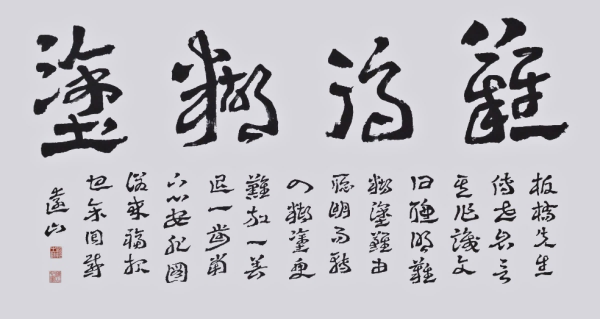 難得糊塗
板橋先生
傳世名言
其識文
曰聰明難
糊塗難由
聰明而轉
入糊塗更
難放一著
退一步當
下心安非圖
後來福報
也
遠山